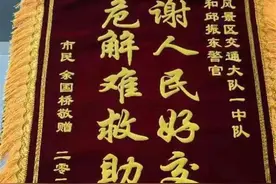 风景区交通大队一中队
和邱振东警官
谢人民好交
危解难救助
市民 余国桥敬赠
二零一